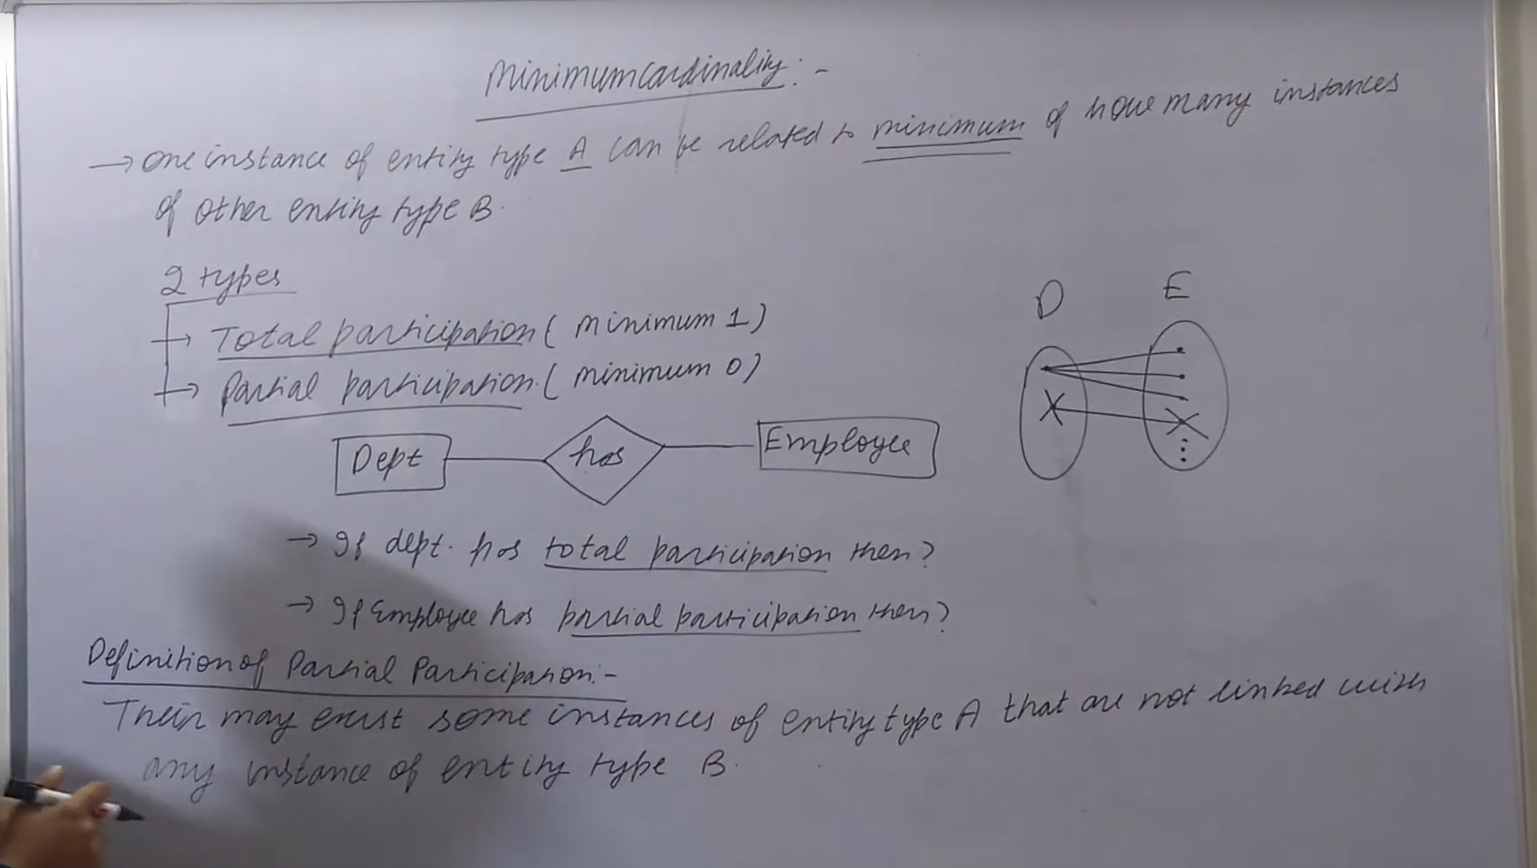 Minimum cardinality:-
→ one instance of entity type A can be related to minimum of how many instances
of other entity type B.
2 types
→ Total participation (minimum 1)
→ Partial participation (minimum 0)
D E
Dept has Employee
→ If dept. has total participation then?
→ If Employee has partial participation then?
Definition of Partial Participation:-
Their may exist some instances of entity type A that are not linked with
any instance of entity type B.